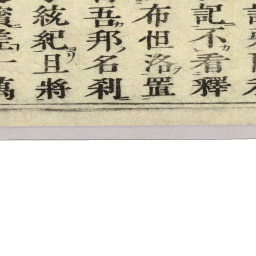 記不看釋
布但洛置
吾邦名刹
統紀且將